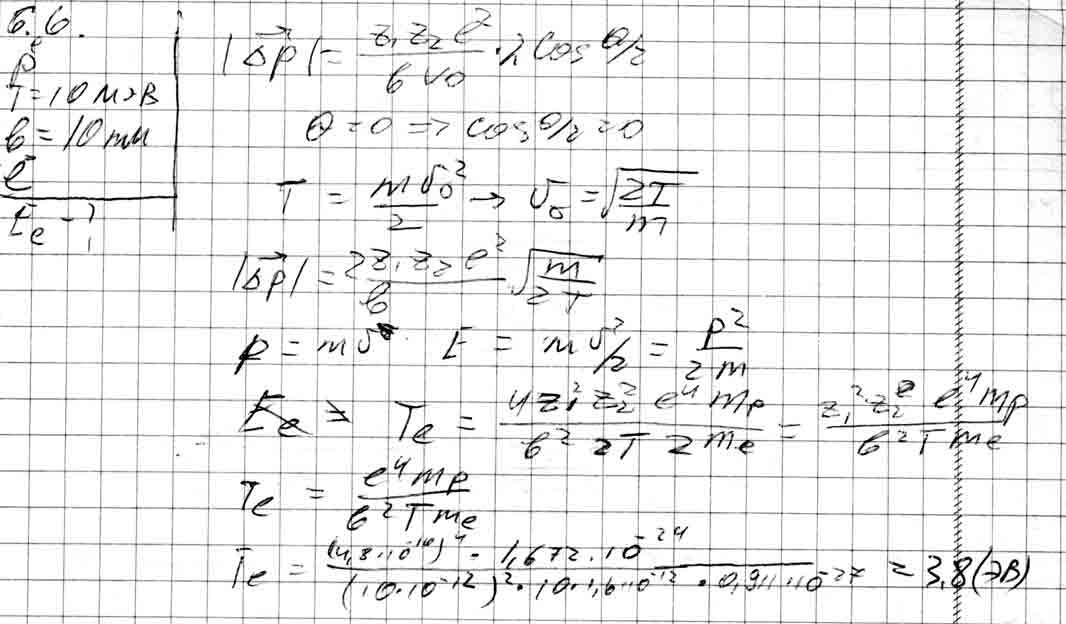 5.6.
p
T = 10 МэВ
b = 10 пм
e⁻
Tₑ - ?
|Δp⃗| = z₁z₂e²/(b v₀) · 2 cos θ/2
θ = 0 => cos θ/2 = 0
T = mυ₀²/2 → υ₀ = √(2T/m)
|Δp⃗| = 2z₁z₂e²/b √(m/2T)
p = mυ. E = mυ²/2 = p²/2m
Tₑ = 4z₁²z₂² e⁴ mₚ/(b² 2T 2mₑ) = z₁²z₂² e⁴ mₚ/(b² T mₑ)
Tₑ = e⁴mₚ/(b²Tmₑ)
Tₑ = (4,8·10⁻¹⁰)⁴ · 1,672·10⁻²⁴/((10·10⁻¹²)² · 10·1,6·10⁻¹² · 0,911·10⁻²⁷) = 3,8 (эВ)